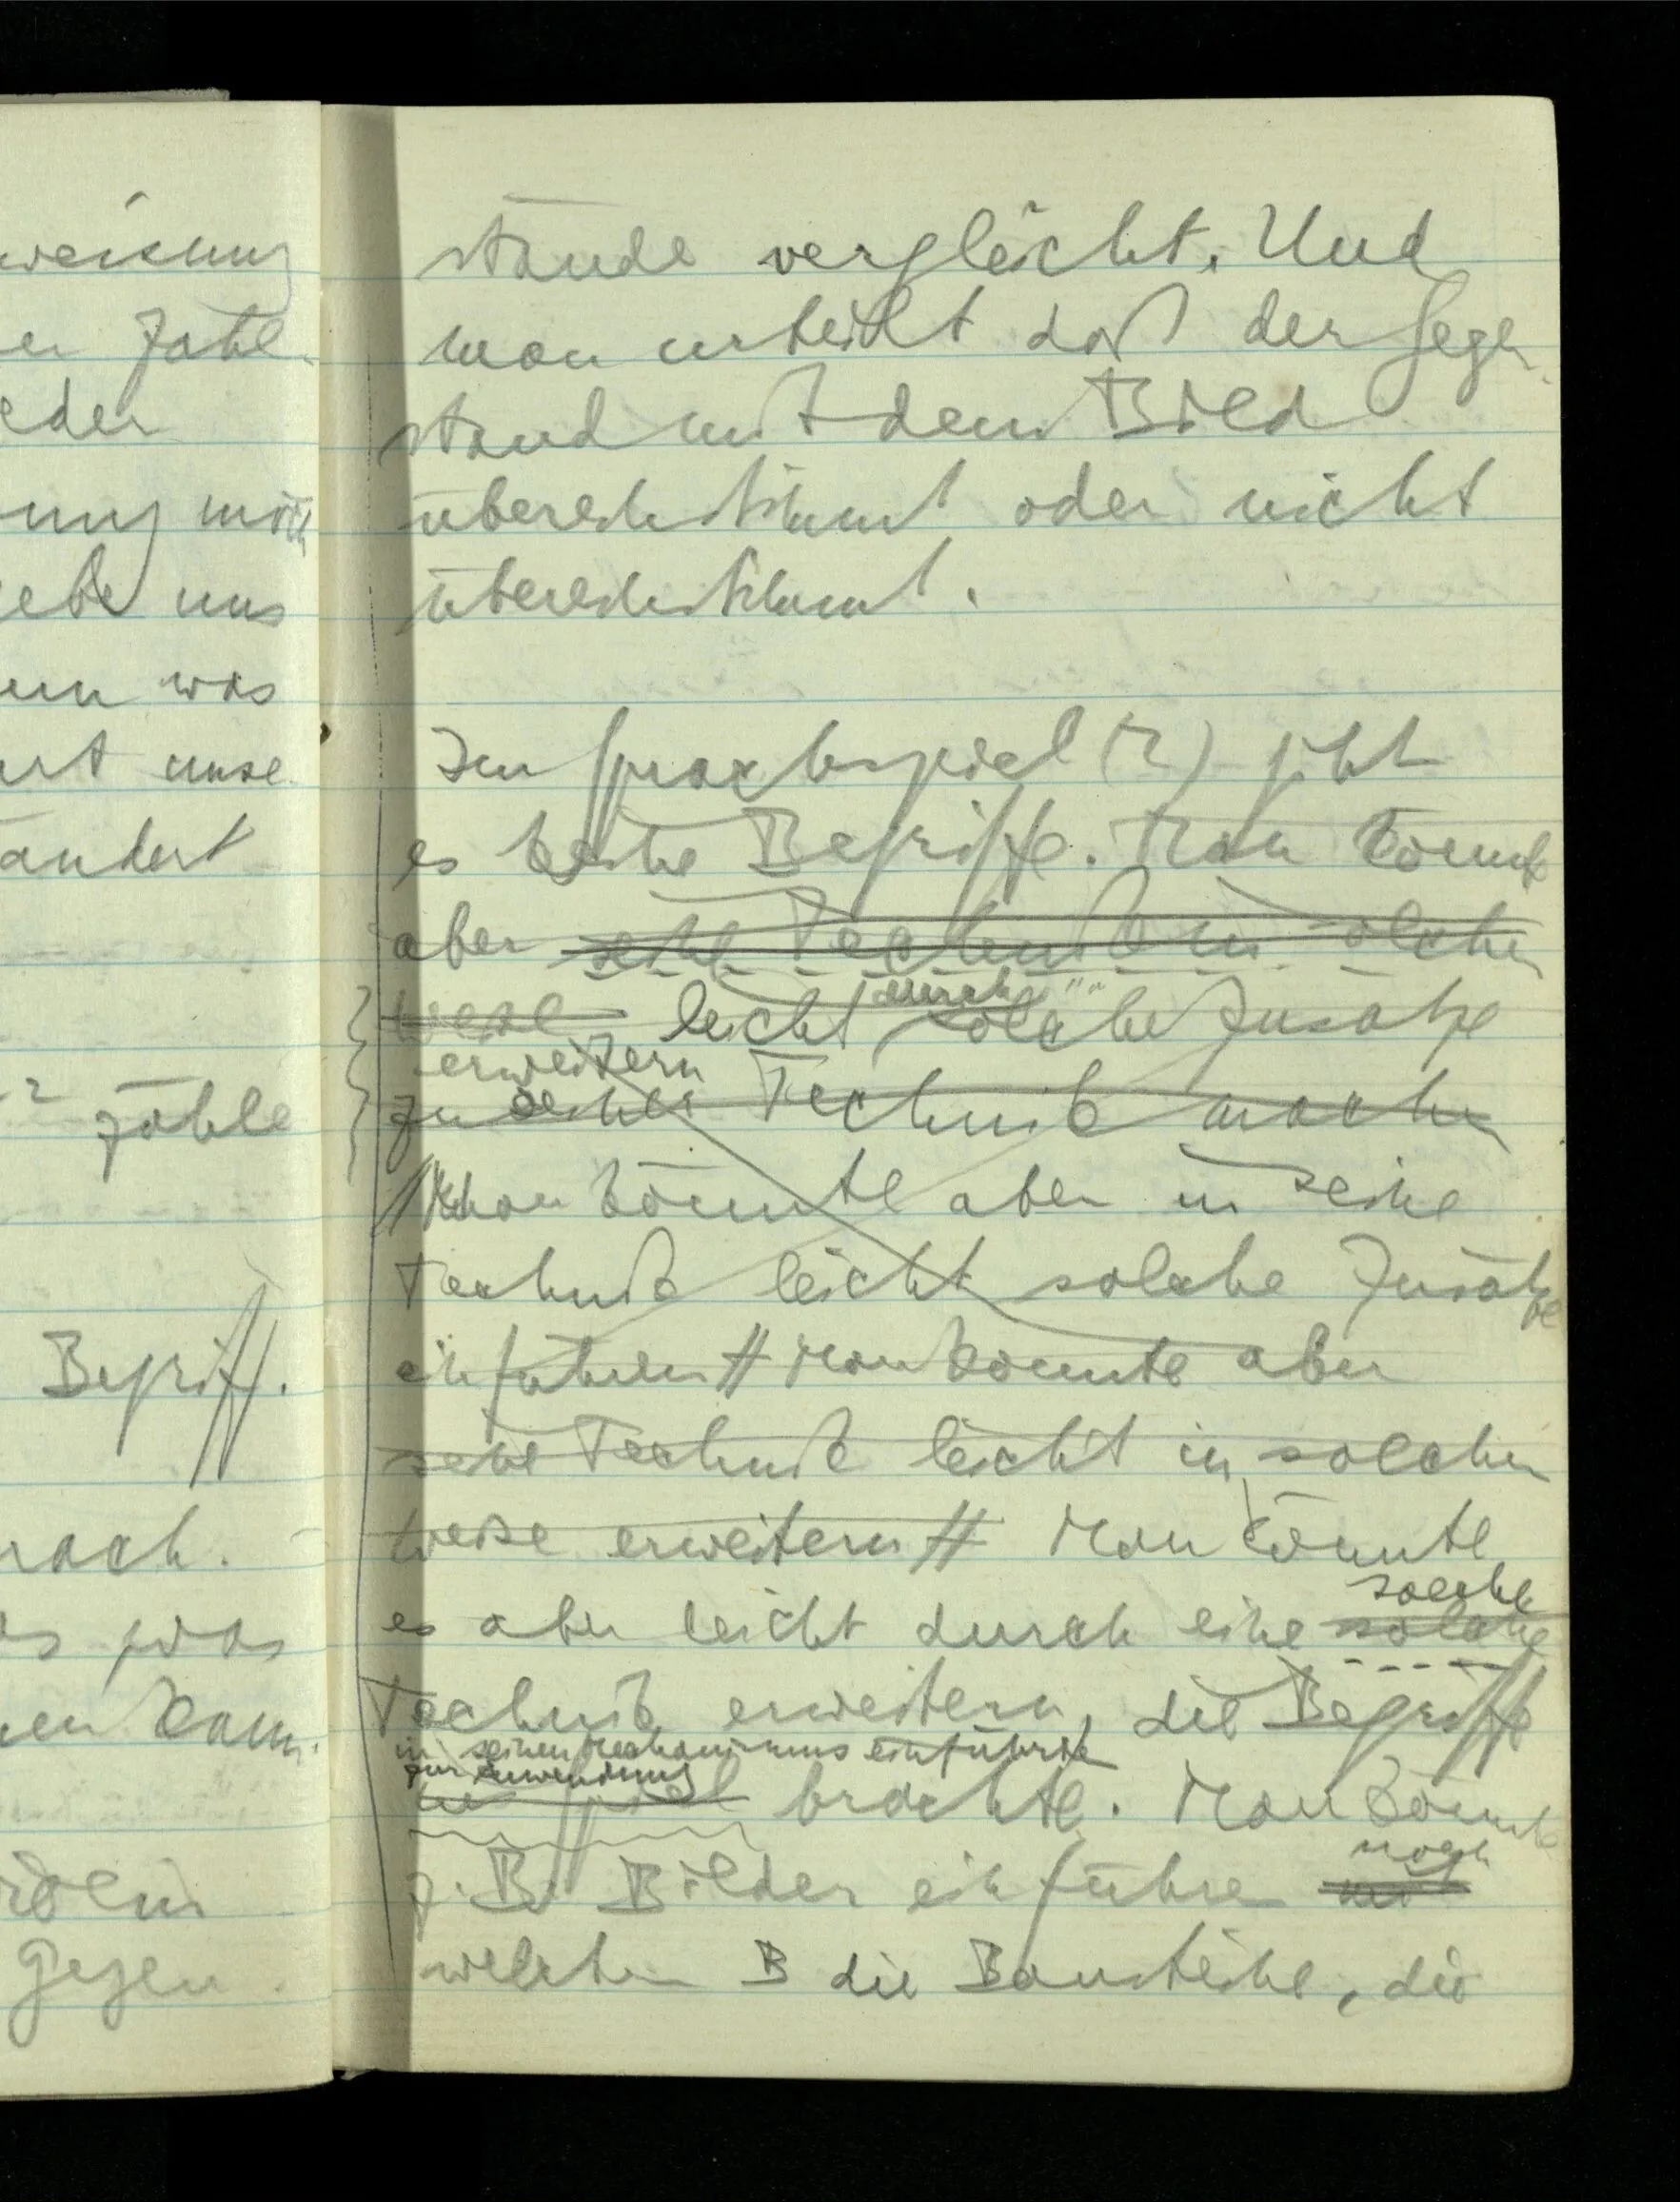 weisung
en Zahl-
eder
nung möch
ebe uns
nn was
ert unse
ändert
zähle
Begriff.
nach.
as was
en kann.
Gegen
stände vergleicht. Und
man urteilt daß der Gegen-
stand mit dem Bild
übereinstimmt oder nicht
übereinstimmt.
Im Sprachspiel (2) gibt
es keine Begriffe. Man könnte
aber seine Technik in solcher
Weise leicht durch solche Zusätze
erweitern
zu einer Technik machen
Man könnte aber in seine
Technik leicht solche Zusätze
einführen // Man könnte aber
seine Technik leicht in solcher
Weise erweitern // Man könnte
solche
es aber leicht durch eine solche
Technik erweitern, die Begriffe
in seinen Mechanismus einführte
zur Anwendung
ins Spiel brächte. Man könnte
noch
z.B. Bilder einführen
welchen B die Bausteine, die